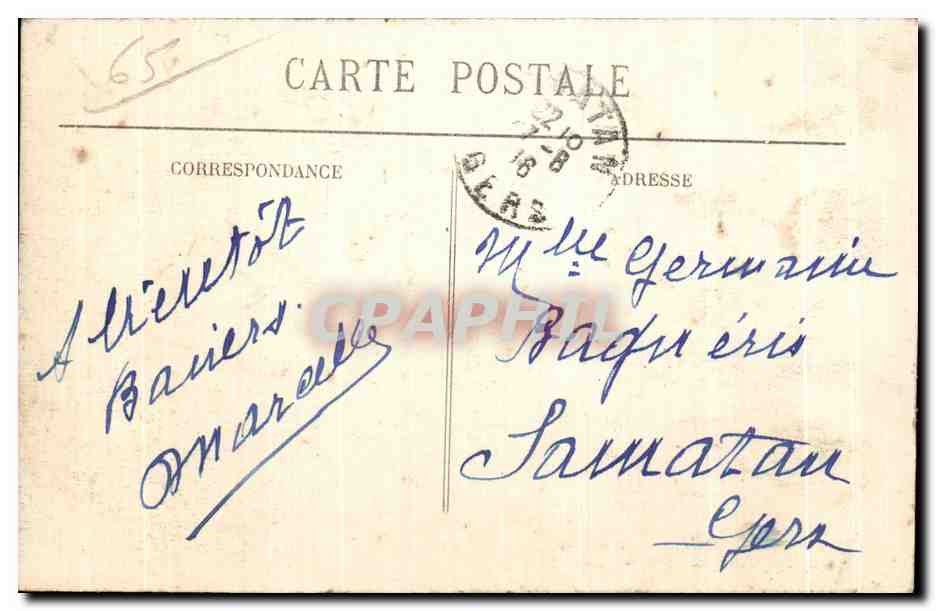 65
CARTE POSTALE
CORRESPONDANCE
A bientôt
Baisers.
Marcelle
ATAN
22 10
7-8
16
GERS
ADRESSE
Mlle Germaine
Baquéris
Samatan
Gers
CPAPHIL